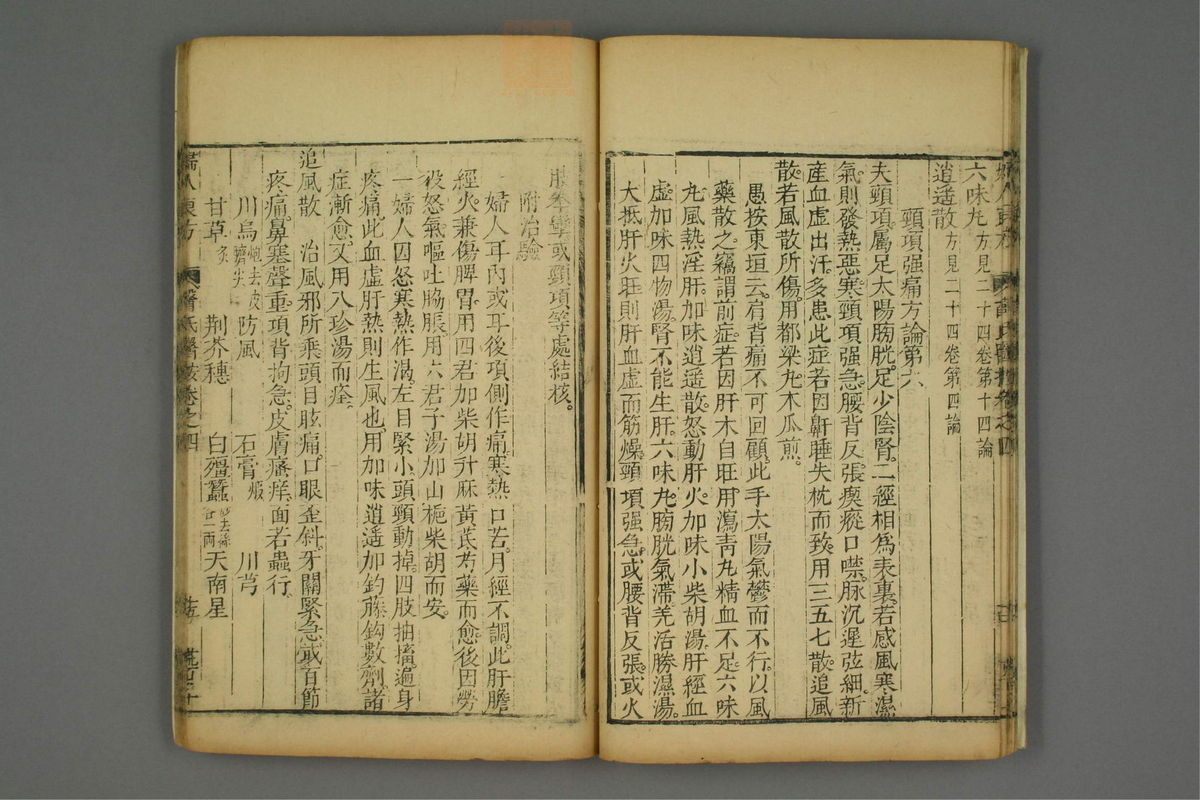 六味丸方見二十四卷第十四論
逍遥散方見二十四卷第四論
頸項强痛方論第六
夫頸項屬足太陽膀胱足少陰腎二經相爲表裏若感風寒濕
氣則發熱惡寒頸項强急腰背反張瘈瘲口噤脉沉遲弦細新
産血虛出汗多患此症若因鼾睡失枕而致用三五七散追風
散若風散所傷用都梁丸木瓜煎
愚按東垣云肩背痛不可回顧此手太陽氣鬱而不行以風
藥散之竊謂前症若因肝木自旺用瀉青丸精血不足六味
丸風熱淫肝加味逍遥散怒動肝火加味小柴胡湯肝經血
虛加味四物湯腎不能生肝六味丸膀胱氣滯羌活勝濕湯
大抵肝火旺則肝血虛而筋燥頸項强急或腰背反張或火
或頸項等處結核
附治驗
婦人耳內或耳後項側作痛寒熱口苦月經不調此肝膽
經火兼傷脾胃用四君加柴胡升麻黃芪芍藥而愈後因勞
役怒氣嘔吐脇脹用六君子湯加山梔柴胡而安
一婦人因怒寒熱作渴左目緊小頭頸動掉四肢抽搐遍身
疼痛此血虛肝熱則生風也用加味逍遥加鈎藤鈎數劑諸
症漸愈又用八珍湯而痊
追風散 治風邪所乘頭目眩痛口眼歪斜牙關緊急或百節
疼痛鼻塞聲重項背拘急皮膚瘙痒面若蟲行
川烏炮去皮臍尖 防風 石膏煅 川芎
甘草炙 荆芥穗 白殭蠶 天南星
四